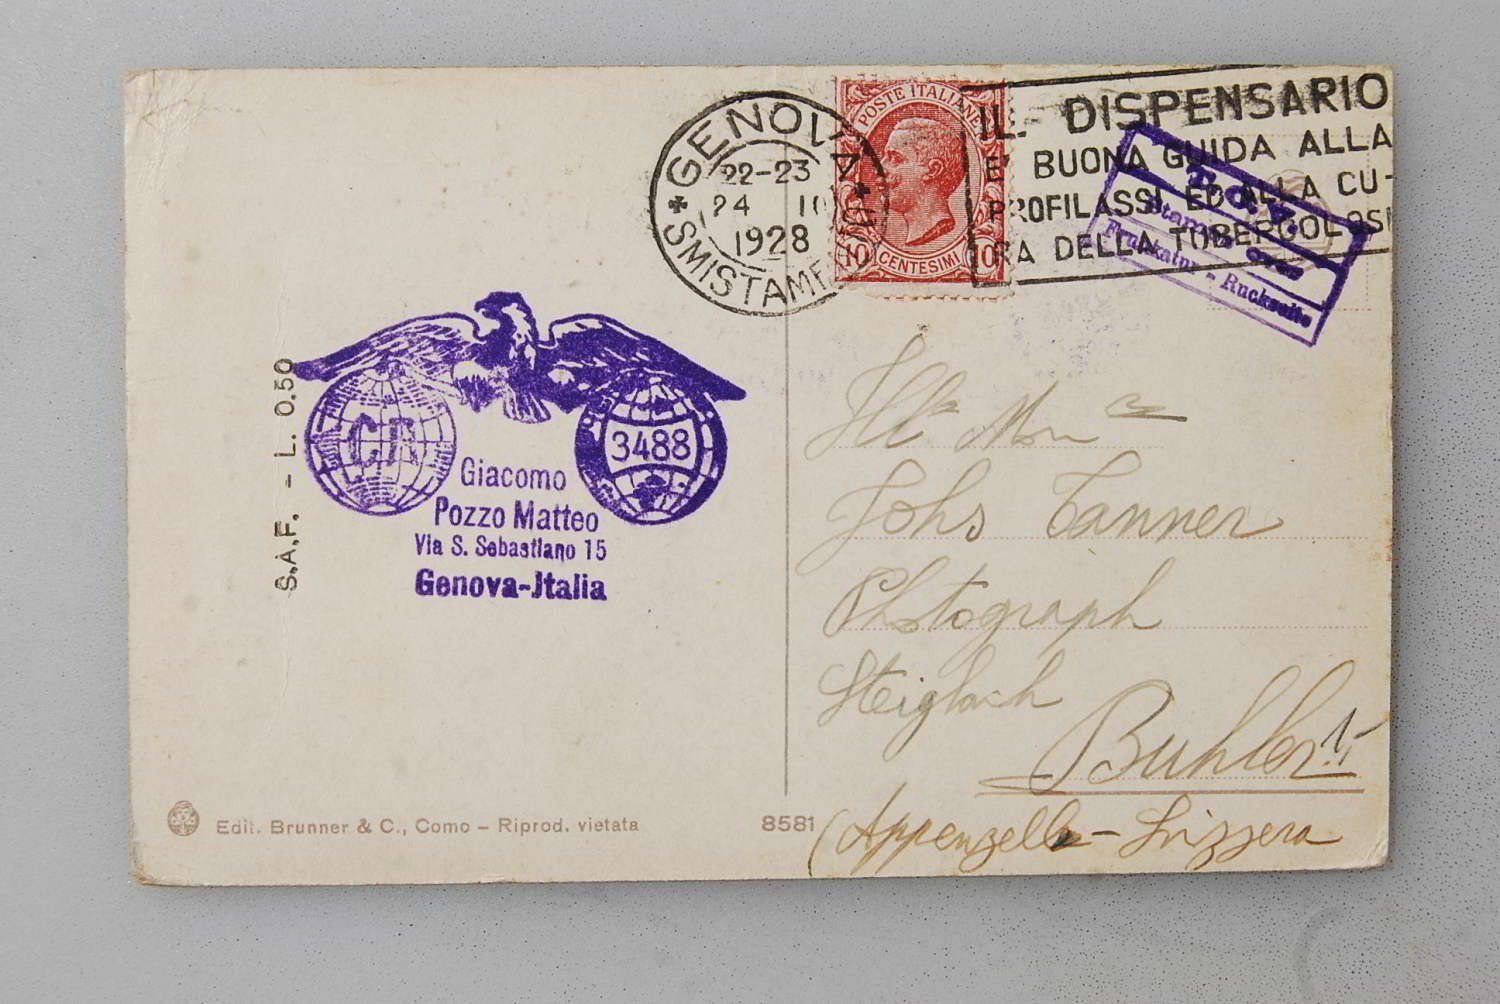 GENOVA
SMISTAM
22-23
24 10
1928
POSTE ITALIANE
10 CENTESIMI 10
IL DISPENSARIO
E' BUONA GUIDA ALLA
PROFILASSI ED ALLA CU-
RA DELLA TUBERCOLOSI
T.C.V.
Stamps
- Rückseite
S.A.F. - L. 0.50
CA
3488
Giacomo
Pozzo Matteo
Via S. Sebastiano 15
Genova-Italia
Johs Tanner
Photograph
Steigbach
Buhler
(Appenzell - Svizzera
Edit. Brunner & C., Como - Riprod. vietata
8581